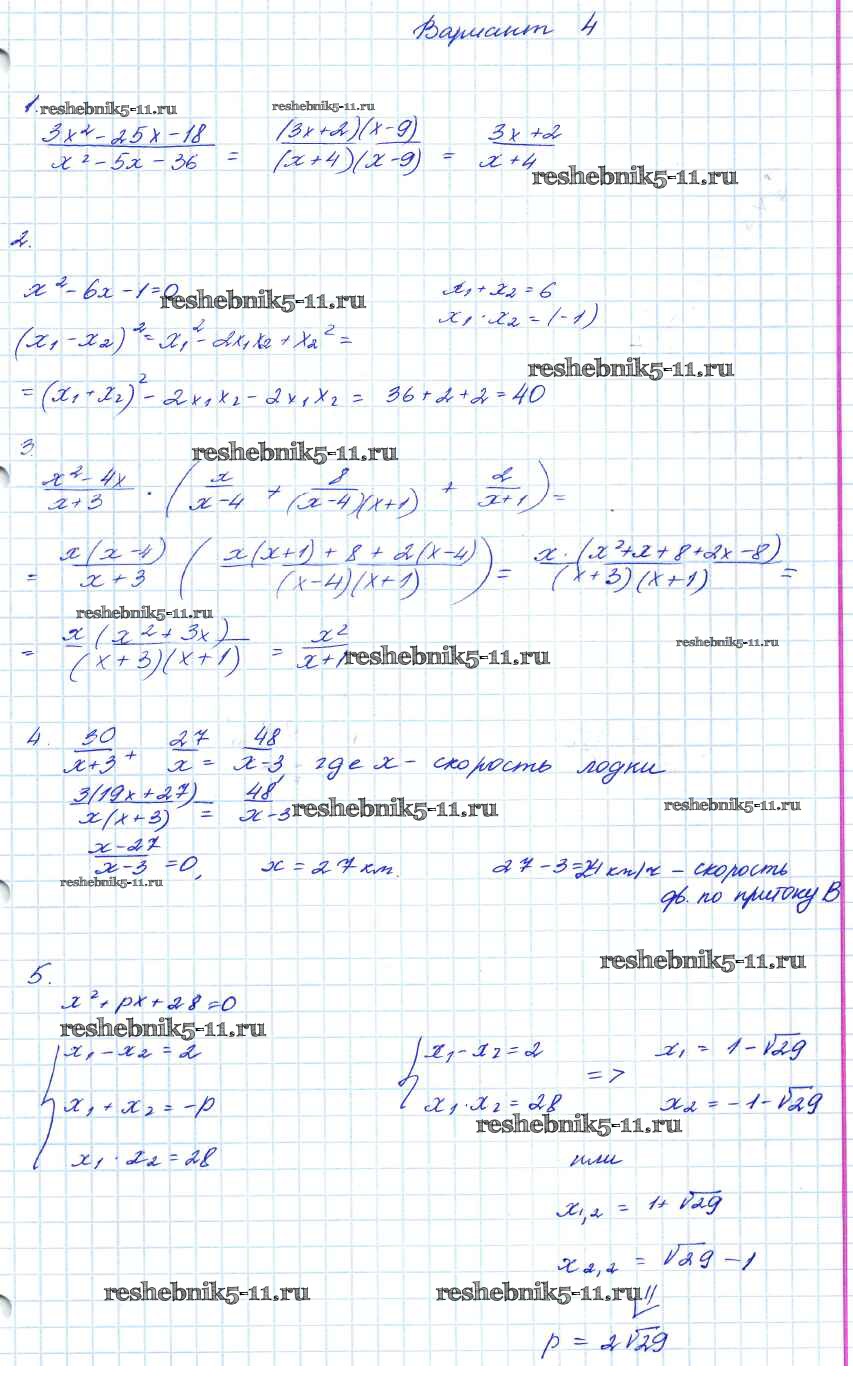 Вариант 4
1. reshebnik5-11.ru reshebnik5-11.ru
(3x² - 25x - 18)/(x² - 5x - 36) = ((3x+2)(x-9))/((x+4)(x-9)) = (3x+2)/(x+4)
reshebnik5-11.ru
2.
x² - 6x - 1 = 0 x₁ + x₂ = 6
reshebnik5-11.ru
x₁ · x₂ = (-1)
(x₁ - x₂)² = x₁² - 2x₁x₂ + x₂² =
reshebnik5-11.ru
= (x₁ + x₂)² - 2x₁x₂ - 2x₁x₂ = 36 + 2 + 2 = 40
3. reshebnik5-11.ru
(x² - 4x)/(x+3) · (x/(x-4) + 8/((x-4)(x+1)) + 2/(x+1)) =
= (x(x-4))/(x+3) ((x(x+1) + 8 + 2(x-4))/((x-4)(x+1))) = (x·(x²+x+8+2x-8))/((x+3)(x+1)) =
reshebnik5-11.ru
= (x(x²+3x))/((x+3)(x+1)) = x²/(x+1)
reshebnik5-11.ru reshebnik5-11.ru
4. 30/(x+3) + 27/x = 48/(x-3), где x - скорость лодки
3(19x+27)/(x(x+3)) = 48/(x-3)
reshebnik5-11.ru reshebnik5-11.ru
(x-27)/(x-3) = 0, x = 27 км. 27 - 3 = 24 км/ч - скорость
reshebnik5-11.ru
дв. по притоку В
reshebnik5-11.ru
5.
x² + px + 28 = 0
reshebnik5-11.ru
x₁ - x₂ = 2 x₁ - x₂ = 2 => x₁ = 1 - √29
x₁ + x₂ = -p x₁ · x₂ = 28 x₂ = -1 - √29
reshebnik5-11.ru
x₁ · x₂ = 28 или
x₁,₂ = 1 + √29
x₂,₂ = √29 - 1
reshebnik5-11.ru reshebnik5-11.ru
p = 2√29